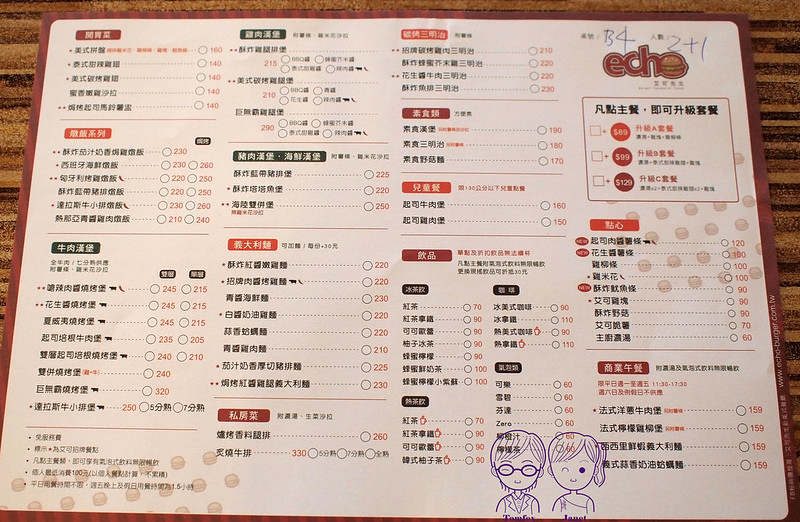 開胃菜
美式拼盤 160
泰式甜辣雞翅 140
美式碳烤雞翅 140
蜜香嫩雞沙拉 140
焗烤起司馬鈴薯盅 140
燉飯系列
焗烤
酥炸茄汁奶香焗雞燉飯 230
西班牙海鮮燉飯 230 260
匈牙利烤雞燉飯 220 250
酥炸藍帶豬排燉飯 220 250
達拉斯牛小排燉飯 230 260
熱那亞青醬雞肉燉飯 210 240
牛肉漢堡
全牛肉/七分熟供應
附薯條、雞米花沙拉
雙層 單層
嗆辣肉醬燒烤堡 245 215
花生醬燒烤堡 245 215
夏威夷燒烤堡 245 215
起司培根燒烤堡 235 205
雙層起司培根燒烤堡 240
雙併燒烤堡 (雞+牛) 240
巨無霸燒烤堡 320
達拉斯牛小排堡 250 5分熟 7分熟
免服務費
標示★為艾可招牌餐點
凡點主餐類，即可享有氣泡式飲料無限暢飲
個人最低消費100元(以個人餐點計算，不累積)
平日用餐時間不限，週五晚上及假日用餐時間為1.5小時
雞肉漢堡 附薯條、雞米花沙拉
酥炸雞腿排堡
215 BBQ醬 蜂蜜芥末醬
泰式甜辣醬 辣肉醬
美式碳烤雞腿堡
210 BBQ醬 青醬
花生醬 辣肉醬
巨無霸雞腿堡
290 BBQ醬 蜂蜜芥末醬
泰式甜辣醬 辣肉醬
豬肉漢堡．海鮮漢堡 附薯條、雞米花沙拉
酥炸藍帶豬排堡 225
酥炸塔塔魚堡 220
海陸雙併堡 250
無雞米花沙拉
義大利麵 可加麵/每份+30元
酥炸紅醬嫩雞麵 220
招牌肉醬烤雞麵 220
青醬海鮮麵 230
白醬奶油雞麵 220
蒜香蛤蠣麵 220
青醬雞肉麵 210
茄汁奶香厚切豬排麵 220
焗烤紅醬雞腿義大利麵 230
私房菜 附濃湯、生菜沙拉
爐烤香料腿排 260
炙燒牛排 330 5分熟 7分熟 全熟
碳烤三明治 附薯條
招牌碳烤雞肉三明治 210
酥炸蜂蜜芥末雞三明治 220
花生醬牛肉三明治 220
酥炸魚排三明治 230
素食類 方便素
素食漢堡 190
素食三明治 180
素食野菇麵 170
兒童餐 限130公分以下兒童點餐
起司牛肉堡 160
起司雞肉堡 150
飲品 單點及折扣飲品無法續杯
凡點主餐附氣泡式飲料無限暢飲
更換現搖飲品可折抵30元
冰茶飲
紅茶 70
紅茶拿鐵 90
可可歐蕾 90
柚子冰茶 90
蜂蜜檸檬 90
蜂蜜鮮奶茶 100
蜂蜜檸檬小紫蘇 100
熱茶飲
紅茶 70
紅茶拿鐵 90
可可歐蕾 90
韓式柚子茶 90
咖啡
冰美式咖啡 90
冰拿鐵 110
熱美式咖啡 90
熱拿鐵 110
氣泡類
可樂 60
雪碧 60
芬達 60
Zero 60
柳橙汁 60
檸檬茶 60
桌號 B4 人數 2+1
echo
艾可先生
凡點主餐，即可升級套餐
$89 升級A套餐
$99 升級B套餐
$129 升級C套餐
點心
NEW 起司肉醬薯條 120
NEW 花生醬薯條 100
雞柳條 100
雞米花 100
NEW 酥炸魷魚條 90
艾可雞塊 90
酥炸野菇 90
艾可脆薯 70
主廚濃湯 60
商業午餐 附濃湯及氣泡式飲料無限暢飲
限平日週一至週五 11:30-17:30
週六日及例假日不供應
法式洋蔥牛肉堡 159
法式檸檬雞柳堡 159
西西里鮮蝦義大利麵 159
義式蒜香奶油蛤蠣麵 159
www.echo-burger.com.tw
Tomfox Janet